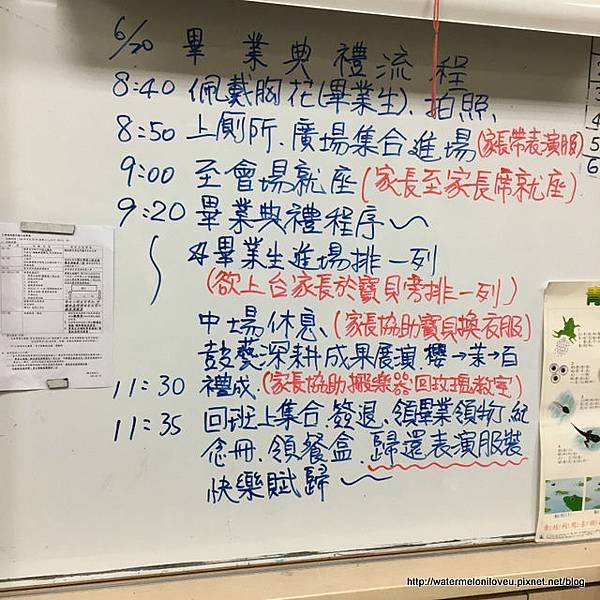 6/20 畢業典禮流程
8:40 佩戴胸花(畢業生)、拍照、
8:50 上廁所、廣場集合進場(家長帶表演服)
9:00 至會場就座(家長至家長席就座)
9:20 畢業典禮程序~
畢業生進場排一列
(欲上台家長於寶貝旁排一列)
中場休息、(家長協助寶貝換衣服)
鼓藝深耕成果展演、櫻→茉→百
11:30 禮成、(家長協助搬樂器回玫瑰教室)
11:35 回班上集合、簽退、領畢業領物、紀
念冊、領餐盒、歸還表演服裝
快樂賦歸~
3
4
5
6
http://watermeloniloveu.pixnet.net/blog